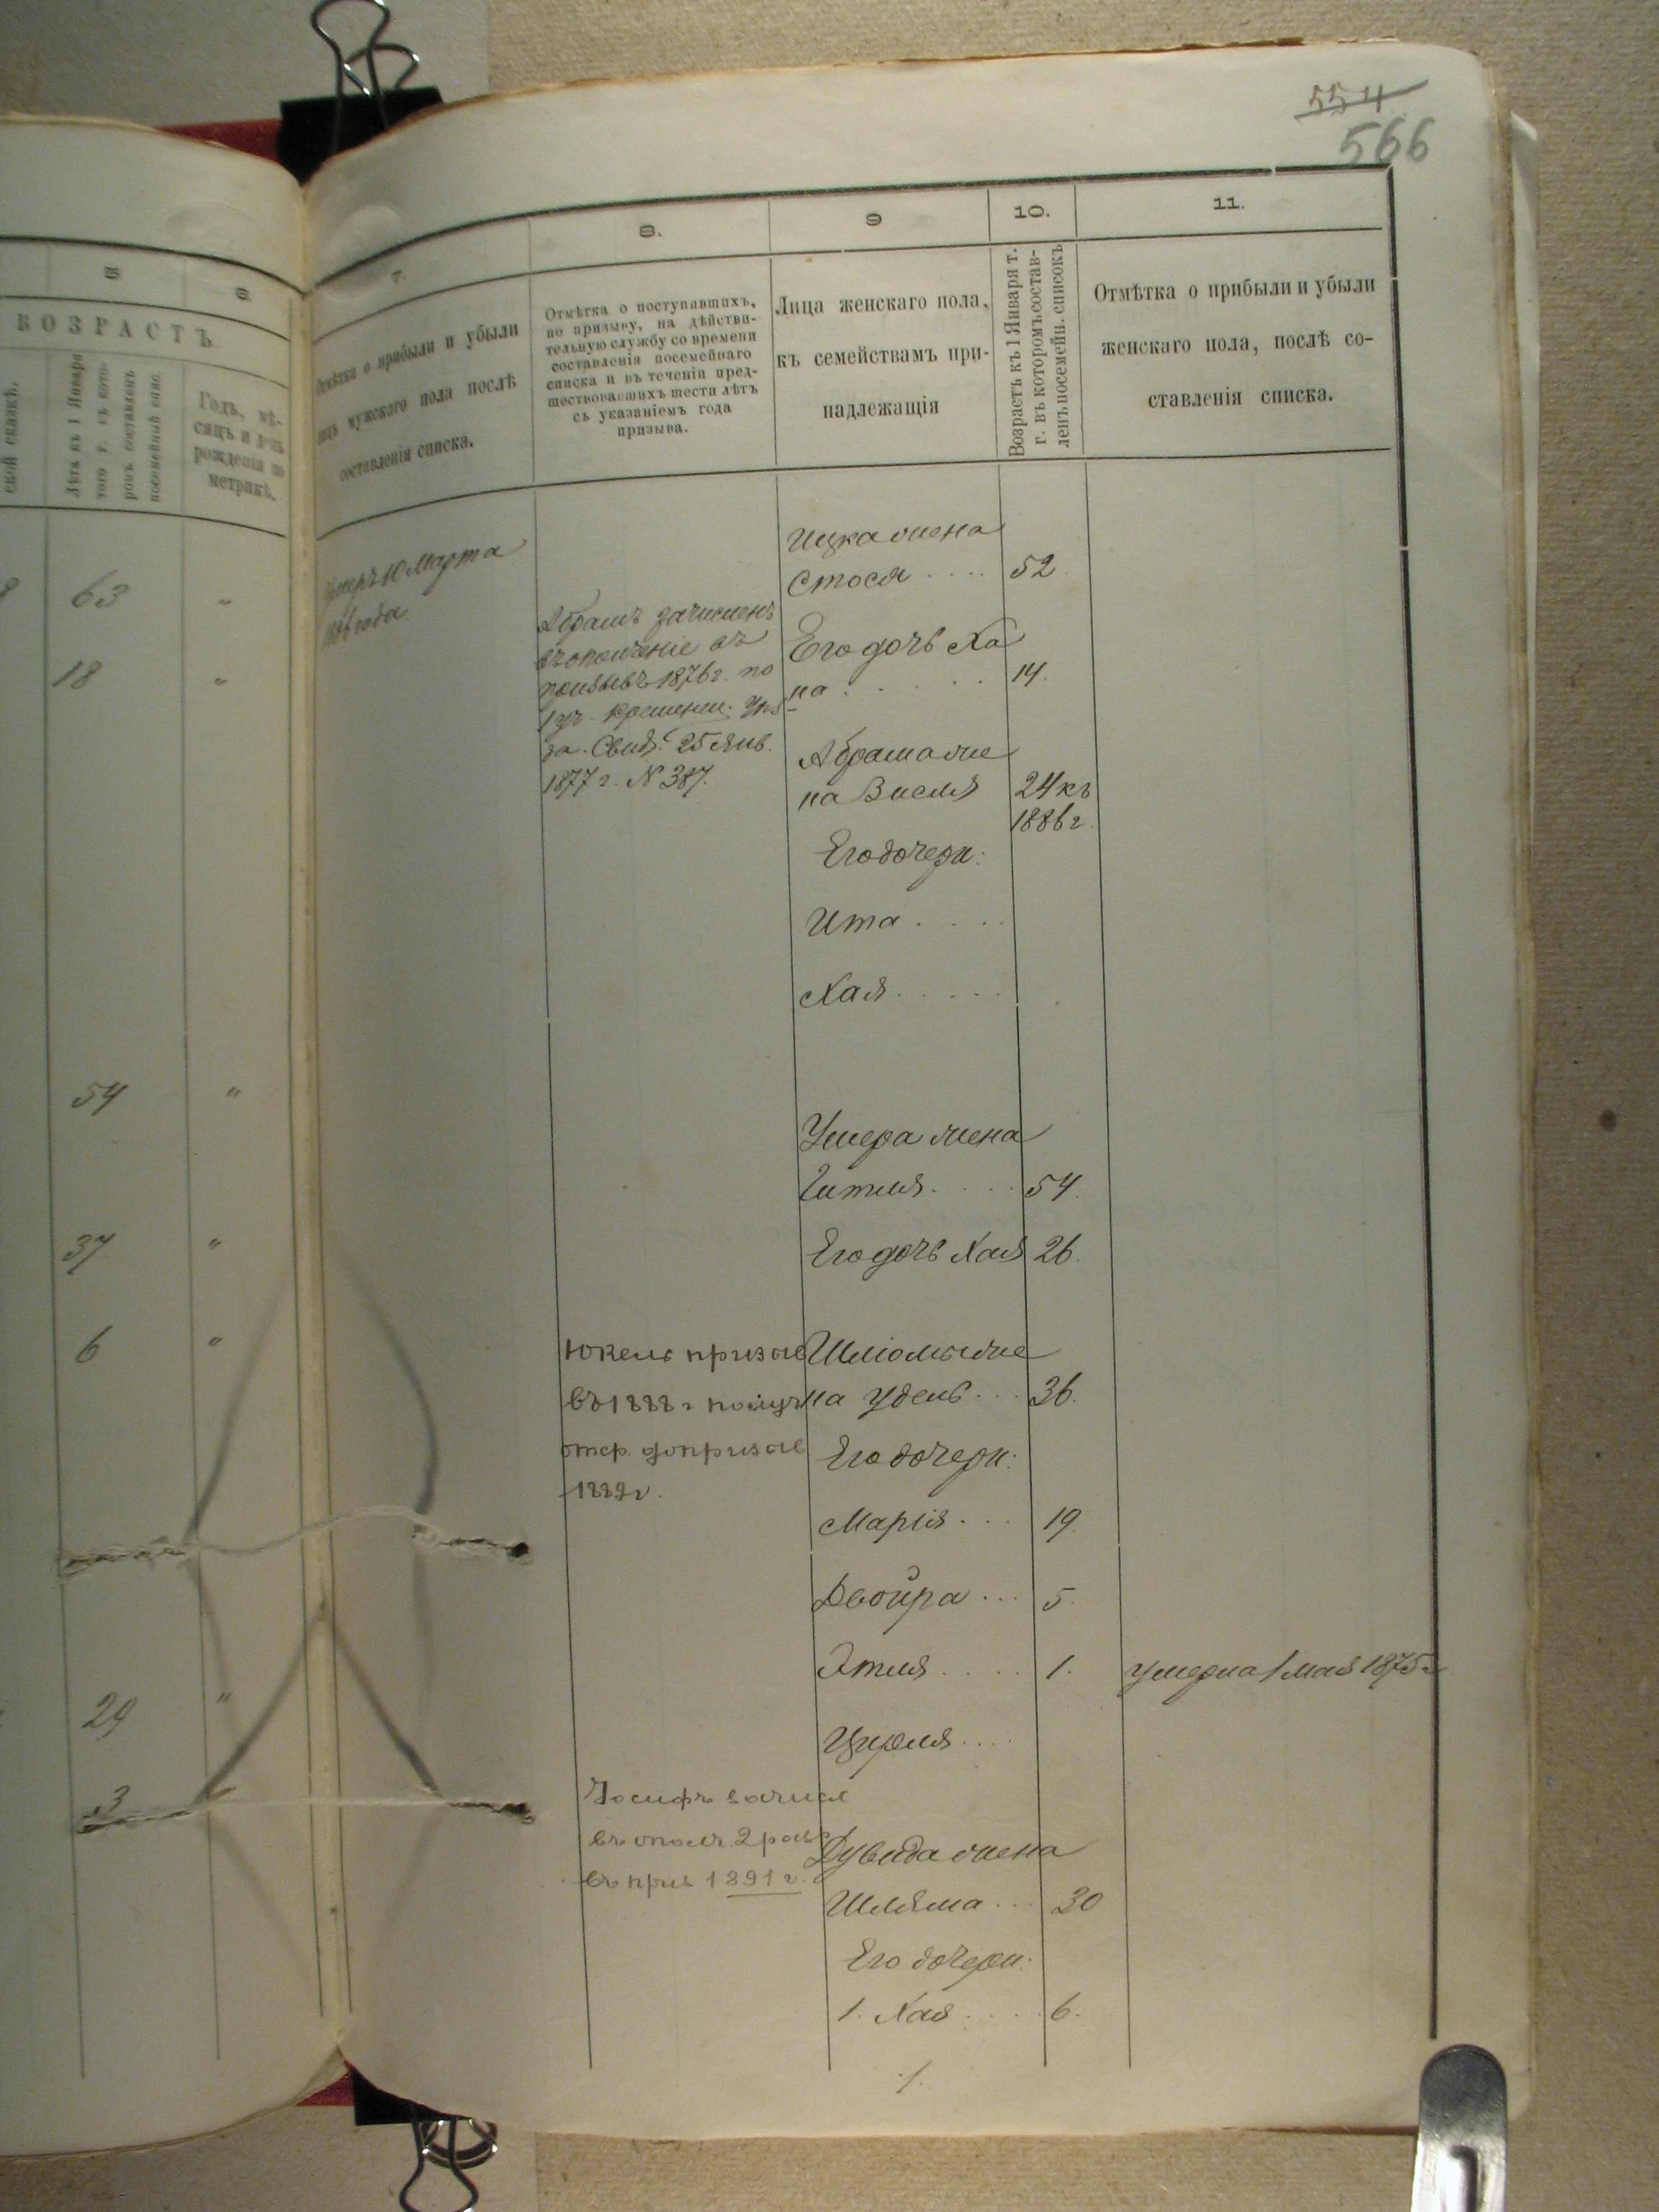 554
566
5
6.
7.
8.
9
10.
11.
ВОЗРАСТЪ
ской сказкѣ.
Лѣта къ 1 Января
того г. въ кото-
ромъ составленъ
посемейный спис.
Годъ, мѣ-
сяцъ и день
рожденія по
метрикѣ.
Отмѣтка о прибыли и убыли
лицъ мужскаго пола послѣ
составленія списка.
Отмѣтка о поступившихъ,
по призыву, на дѣйстви-
тельную службу со времени
составленія посемейнаго
списка и въ теченіи пред-
шествовавшихъ шести лѣтъ
съ указаніемъ года
призыва.
Лица женскаго пола,
къ семействамъ при-
надлежащія
Возрастъ къ 1 Января т.
г. въ которомъ состав-
ленъ посемейн. списокъ
Отмѣтка о прибыли и убыли
женскаго пола, послѣ со-
ставленія списка.
63 "
18 "
54 "
37 "
6 "
29 "
3
Умеръ 10 Марта
года.
Абрамъ зачисленъ
въ ополченіе въ
призывъ 1876 г. по
1 уч.
Свид. 25 Янв.
1877 г. № 387.
Юкель призыв
въ 1888 г получ
отср. до призыв
1889 г.
Іосифъ зачисл
въ ополч. 2 разр
въ приз 1891 г.
Ицка жена
Стося .... 52
Его дочь Ха
на ..... 14.
Абрама же
на Зисля 24 къ
1886 г.
Его дочери:
Ита ....
Хая .....
Умера жена
Гитля .... 54.
Его дочь Хая 26.
Шліомы же
на Удель ... 36.
Его дочери:
Марія ... 19.
Двойра ... 5.
Этля .... 1. умерла 1 мая 1875 г
Цирля ....
Дувида жена
Шляма ... 30
Его дочери:
1. Хая .... 6.
1.